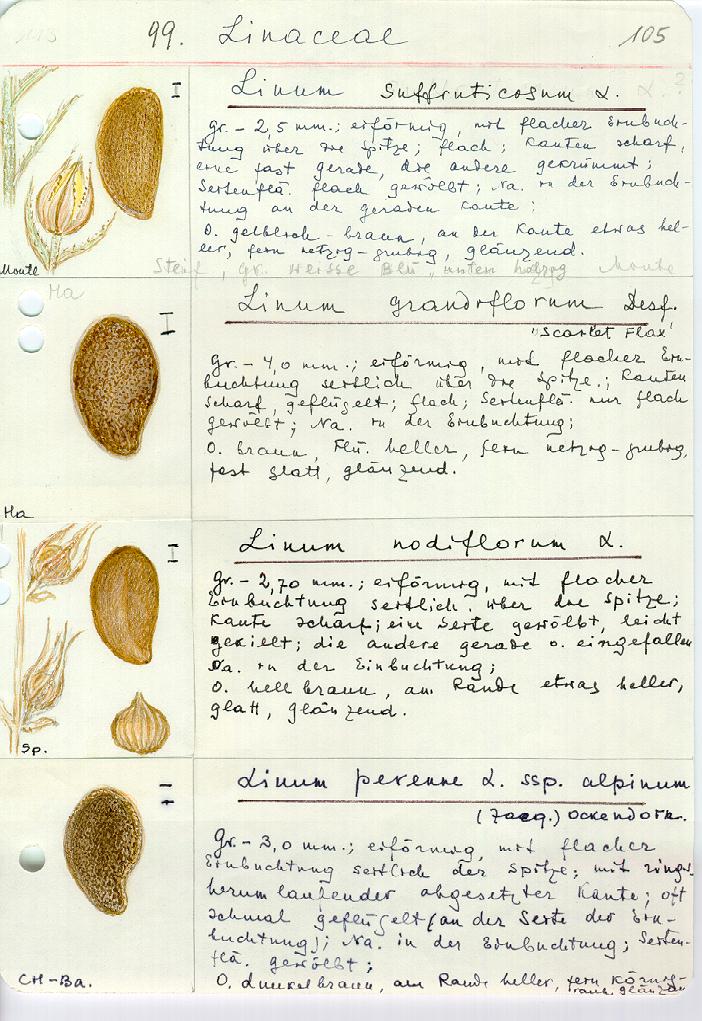 99. Linaceae 105
Linum suffruticosum L.
gr.- 2,5 mm.; eiförmig, mit flacher Einbuch-
tung über die Spitze; flach; Kanten scharf,
eine fast gerade, die andere gekrümmt;
Seitenflä. flach gewölbt; Na. in der Einbuch-
tung an der geraden Kante;
O. gelblich-braun, an der Kante etwas hel-
ler, fein netzig-grubig, glänzend.
Monte
gr. weisse Blü., unten holzig Monte
Ha
Linum grandiflorum Desf.
"Scarlet Flax"
gr.- 4,0 mm.; eiförmig, mit flacher Ein-
buchtung seitlich über die Spitze.; Kanten
scharf, geflügelt; flach; Seitenflä. nur flach
gewölbt; Na. in der Einbuchtung;
O. braun, Flü. heller, fein netzig-grubig,
fast glatt, glänzend.
Ha
Linum nodiflorum L.
Gr.- 2,70 mm.; eiförmig, mit flacher
Einbuchtung seitlich über die Spitze;
Kante scharf; ein Seite gewölbt, leicht
gekielt; die andere gerade o. eingefallen
Na. in der Einbuchtung;
O. hell braun, am Rande etwas heller,
glatt, glänzend.
Sp.
Linum perenne L. ssp. alpinum
(Jacq.) Ockendon.
Gr.- 3,0 mm.; eiförmig, mit flacher
Einbuchtung seitlich der Spitze; mit rings-
herum laufender abgesetzter Kante; oft
schmal geflügelt (an der Seite der Ein-
buchtung); Na. in der Einbuchtung; Seiten-
flä. gewölbt;
O. dunkelbraun, am Rande heller, fein körnig-
rauh, glänzend
CH-Ba.